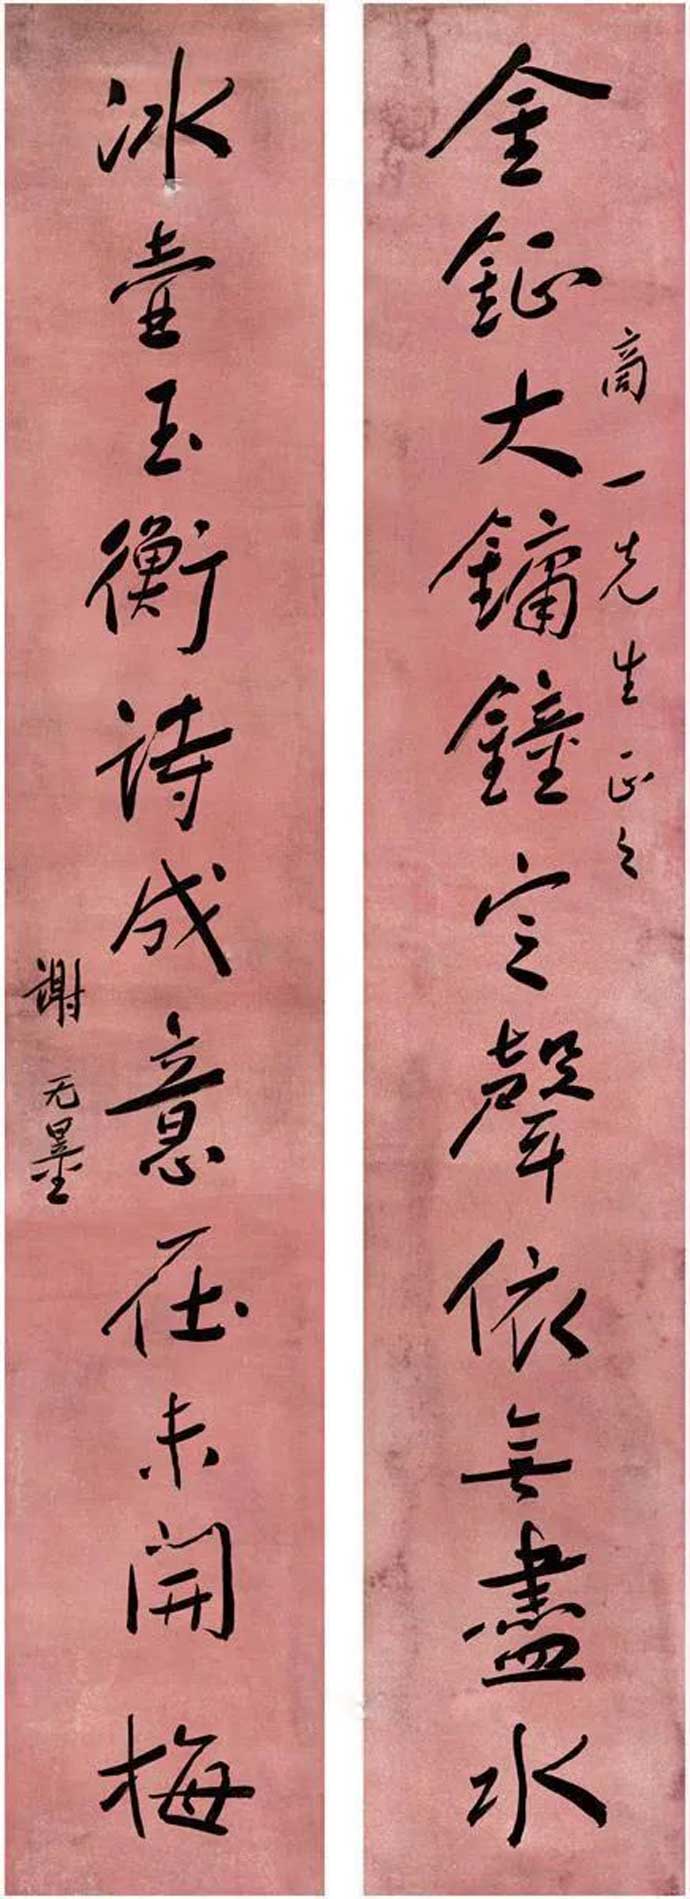 金鉦大鏞鐘定聲依無盡水
商一先生正之
冰壺玉衡詩成意在未開梅
謝无量